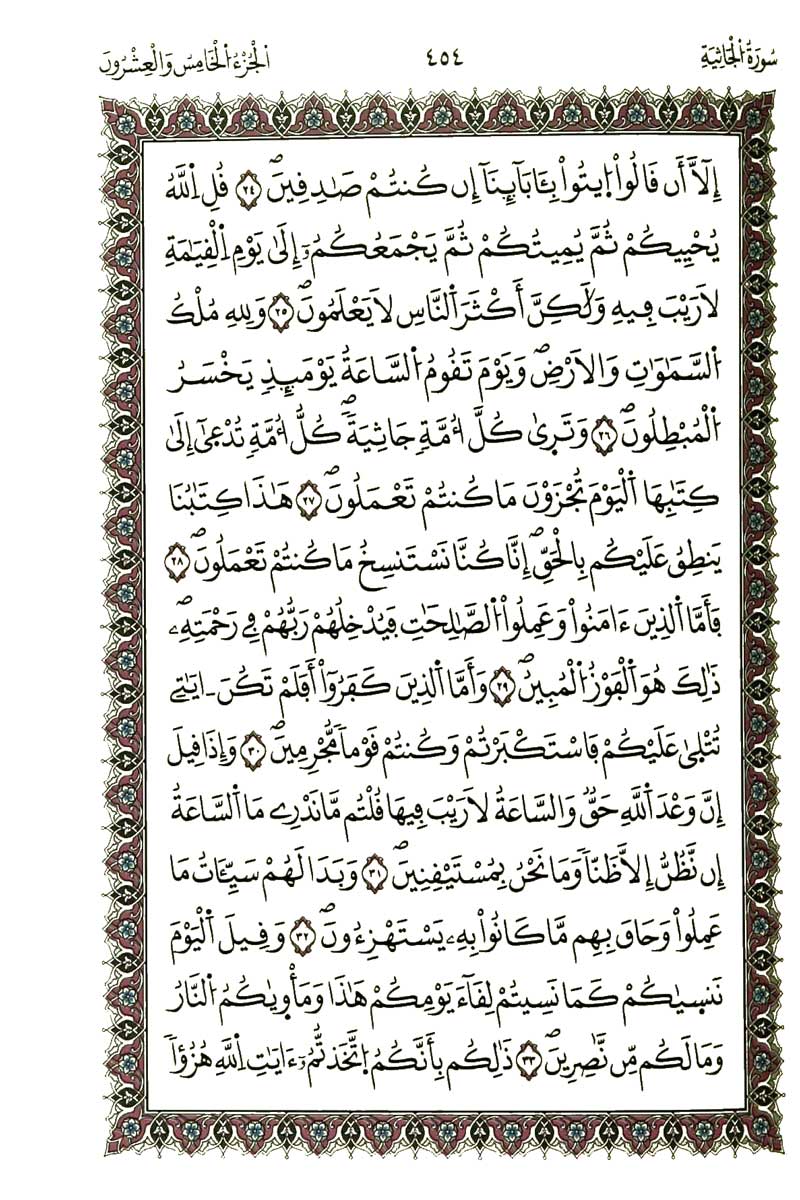 سُورَةُ الْجَاثِيَةِ
٤٥٤
الْجُزْءُ الْخَامِسُ وَالْعِشْرُونَ
إِلَّآ أَن قَالُوا۟ اُ۪يتُوا۟ بِـَٔابَآئِنَآ إِن كُنتُمْ صَٰدِقِينَۖ ٢٤ قُلِ اِ۬للَّهُ
يُحْيِيكُمْ ثُمَّ يُمِيتُكُمْ ثُمَّ يَجْمَعُكُمُۥٓ إِلَىٰ يَوْمِ اِ۬لْقِيَٰمَةِ
لَا رَيْبَ فِيهِ وَلَٰكِنَّ أَكْثَرَ اَ۬لنَّاسِ لَا يَعْلَمُونَۖ ٢٥ وَلِلهِ مُلْكُ
اُ۬لسَّمَٰوَٰتِ وَالَارْضِۖ وَيَوْمَ تَقُومُ اُ۬لسَّاعَةُ يَوْمَئِذٖ يَخْسَرُ
اُ۬لْمُبْطِلُونَۖ ٢٦ وَتَر۪ىٰ كُلَّ أُمَّةٖ جَاثِيَةٗۖ كُلُّ أُمَّةٖ تُدْع۪ىٰٓ إِلَىٰ
كِتَٰبِهَا اَ۬لْيَوْمَ تُجْزَوْنَ مَا كُنتُمْ تَعْمَلُونَۖ ٢٧ هَٰذَا كِتَٰبُنَا
يَنطِقُ عَلَيْكُم بِالْحَقِّۖ إِنَّا كُنَّا نَسْتَنسِخُ مَا كُنتُمْ تَعْمَلُونَۖ ٢٨
فَأَمَّا اَ۬لذِينَ ءَامَنُوا۟ وَعَمِلُوا۟ اُ۬لصَّٰلِحَٰتِ فَيُدْخِلُهُمْ رَبُّهُمْ فِے رَحْمَتِهِۦۖ
ذَٰلِكَ هُوَ اَ۬لْفَوْزُ اُ۬لْمُبِينُۖ ٢٩ وَأَمَّا اَ۬لذِينَ كَفَرُوٓا۟ أَفَلَمْ تَكُنَ ـ ايَٰتِے
تُتْل۪ىٰ عَلَيْكُمْ فَاسْتَكْبَرْتُمْ وَكُنتُمْ قَوْماٗ مُّجْرِمِينَۖ ٣٠ وَإِذَا قِيلَ
إِنَّ وَعْدَ اَ۬للَّهِ حَقّٞ وَالسَّاعَةُ لَا رَيْبَ فِيهَا قُلْتُم مَّا نَدْرِے مَا اَ۬لسَّاعَةُ
إِن نَّظُنُّ إِلَّا ظَنّاٗ وَمَا نَحْنُ بِمُسْتَيْقِنِينَۖ ٣١ وَبَدَا لَهُمْ سَيِّـَٔاتُ مَا
عَمِلُوا۟ وَحَاقَ بِهِم مَّا كَانُوا۟ بِهِۦ يَسْتَهْزِءُونَۖ ٣٢ وَقِيلَ اَ۬لْيَوْمَ
نَنس۪يٰكُمْ كَمَا نَسِيتُمْ لِقَآءَ يَوْمِكُمْ هَٰذَا وَمَأْو۪يٰكُمُ اُ۬لنَّارُ
وَمَا لَكُم مِّن نَّٰصِرِينَۖ ٣٣ ذَٰلِكُم بِأَنَّكُمُ اُ۪تَّخَذتُّمُۥٓ ءَايَٰتِ اِ۬للَّهِ هُزُؤاٗ